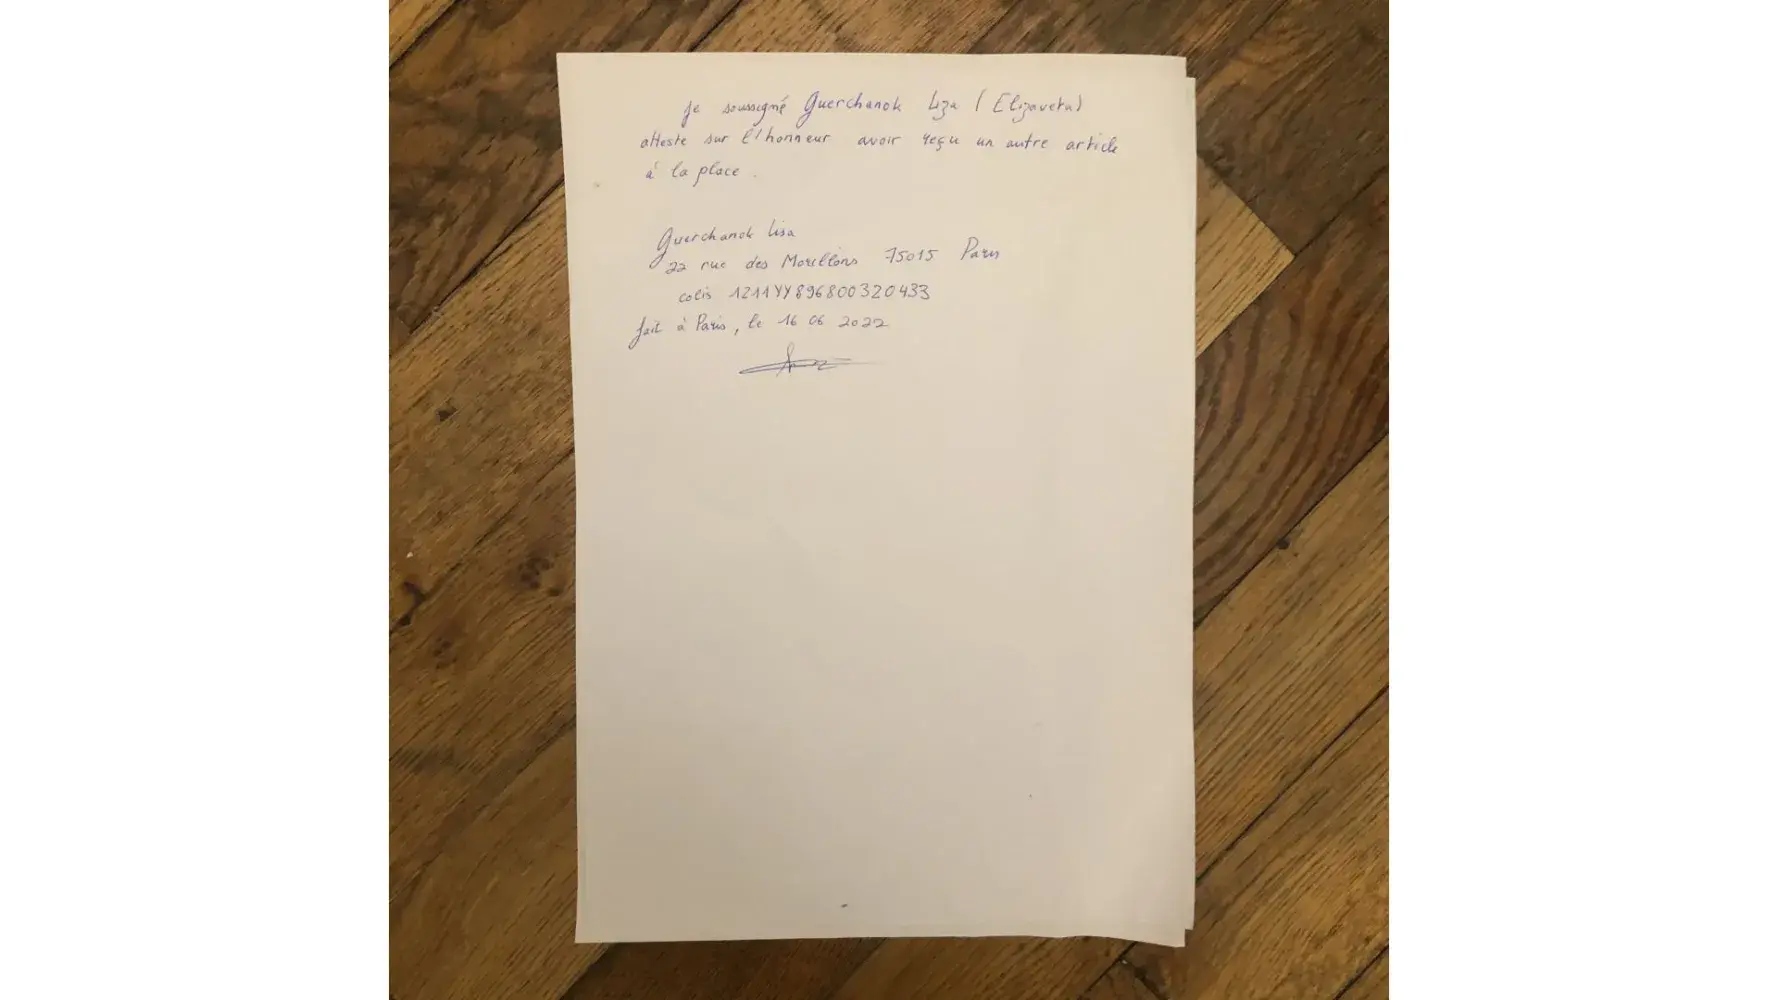 Je soussigné Guerchanok Liza (Elizaveta)
atteste sur l'honneur avoir reçu un autre article
à la place.
Guerchanok Lisa
22 rue des Morillons 75015 Paris
colis 1Z11YY896800320433
fait à Paris, le 16 06 2022